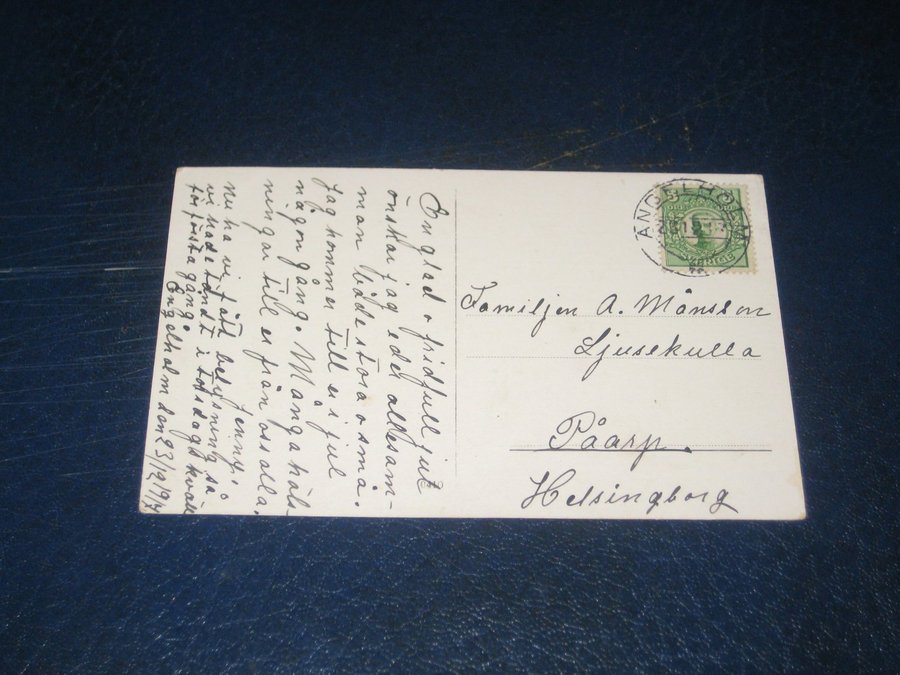 En glad o fridfull jul
önskar jag eder allesam-
man både stora o små.
Jag kommer till er i jul
någon gång. Många häls-
ningar till er från oss alla.
Jenny.
nu ha vi fått belysning, så
vi hade tändt i torsdags kväll
för första gång.
Engelholm den 23/12 1917
ÄNGELHOLM
SVERIGE
Familjen A. Månsson
Ljusekulla
Påarp.
Helsingborg